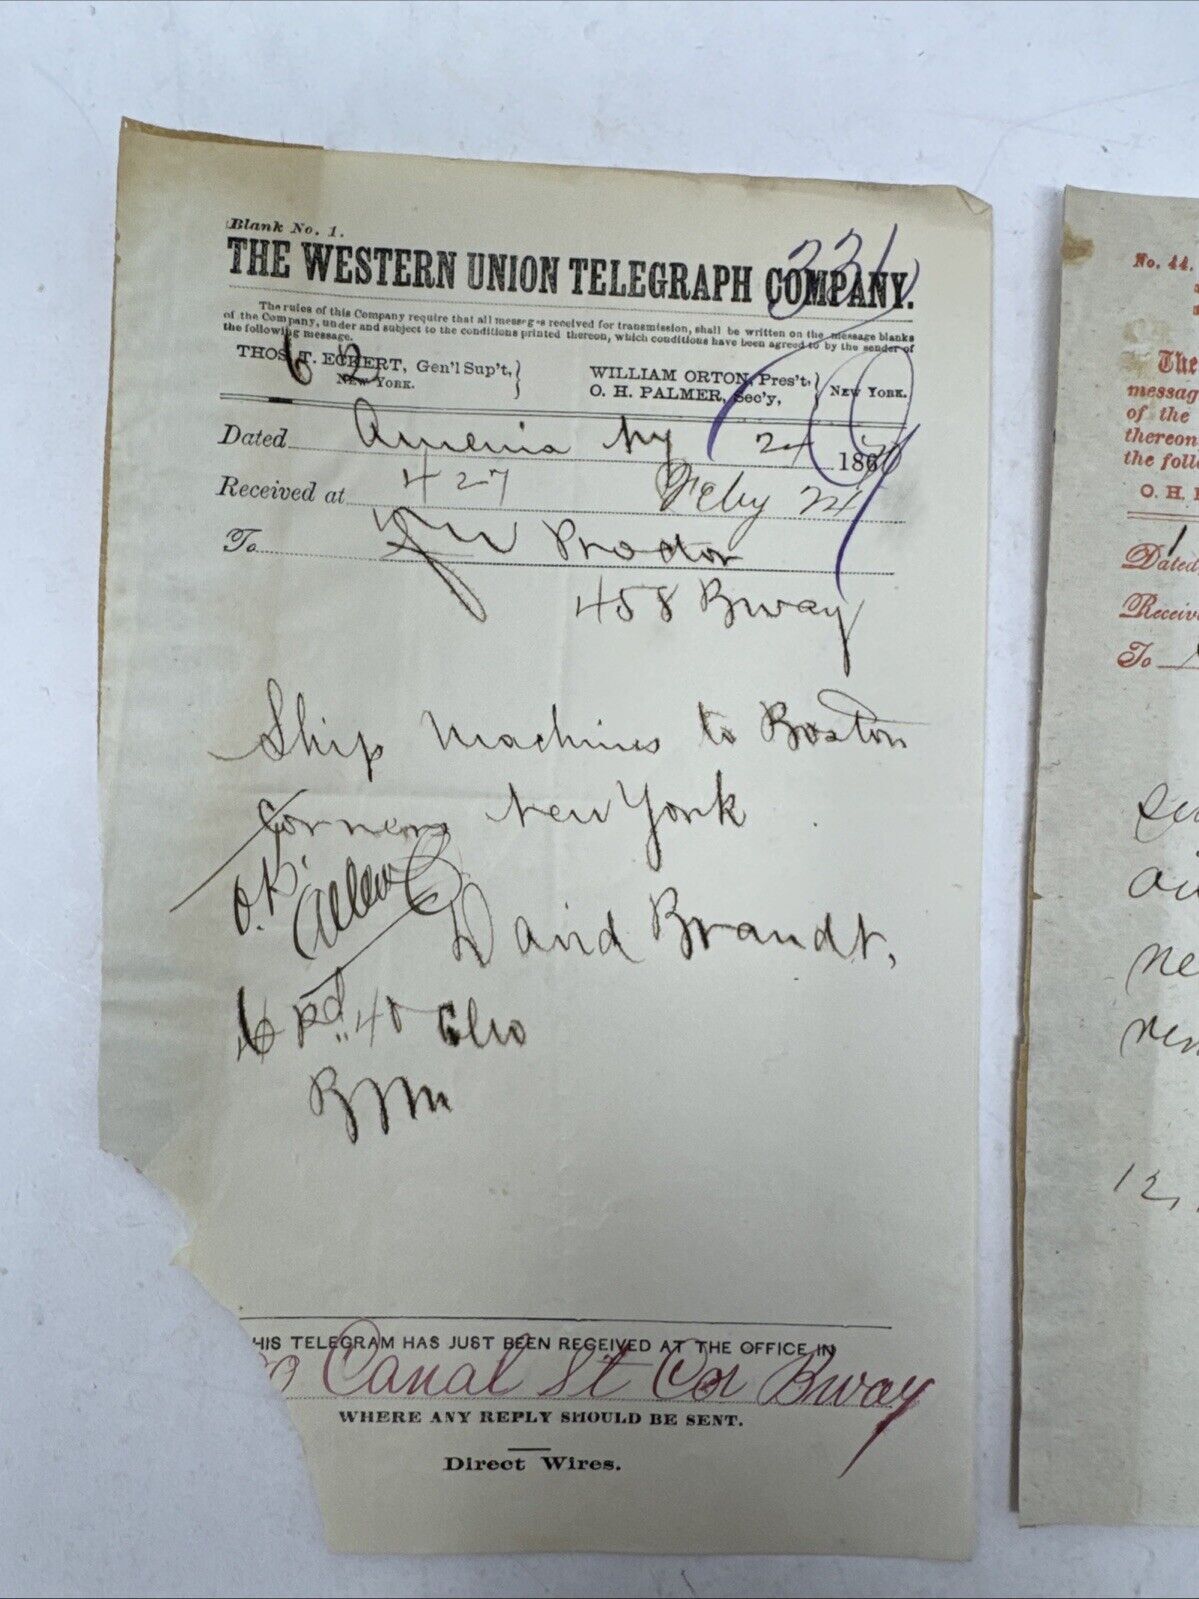 Blank No. 1.
THE WESTERN UNION TELEGRAPH COMPANY.
331
The rules of this Company require that all messages received for transmission, shall be written on the message blanks
of the Company, under and subject to the conditions printed thereon, which conditions have been agreed to by the sender of
the following message.
THOS. T. ECKERT, Gen'l Sup't,
NEW YORK.
WILLIAM ORTON, Pres't,
O. H. PALMER, Sec'y,
NEW YORK.
62
Dated Amenia Ny 24 186
Received at 427 Feby 24
To Proctor
458 Bway
Ship Machines to Boston
Corners New York
O.K.
David Brandt,
Pd 40
HIS TELEGRAM HAS JUST BEEN RECEIVED AT THE OFFICE IN
Canal St Cor Bway
WHERE ANY REPLY SHOULD BE SENT.
Direct Wires.
No. 44.
The
messag
of the
thereon
the foll
O. H.
Dated
Receiv
To
ne
12,